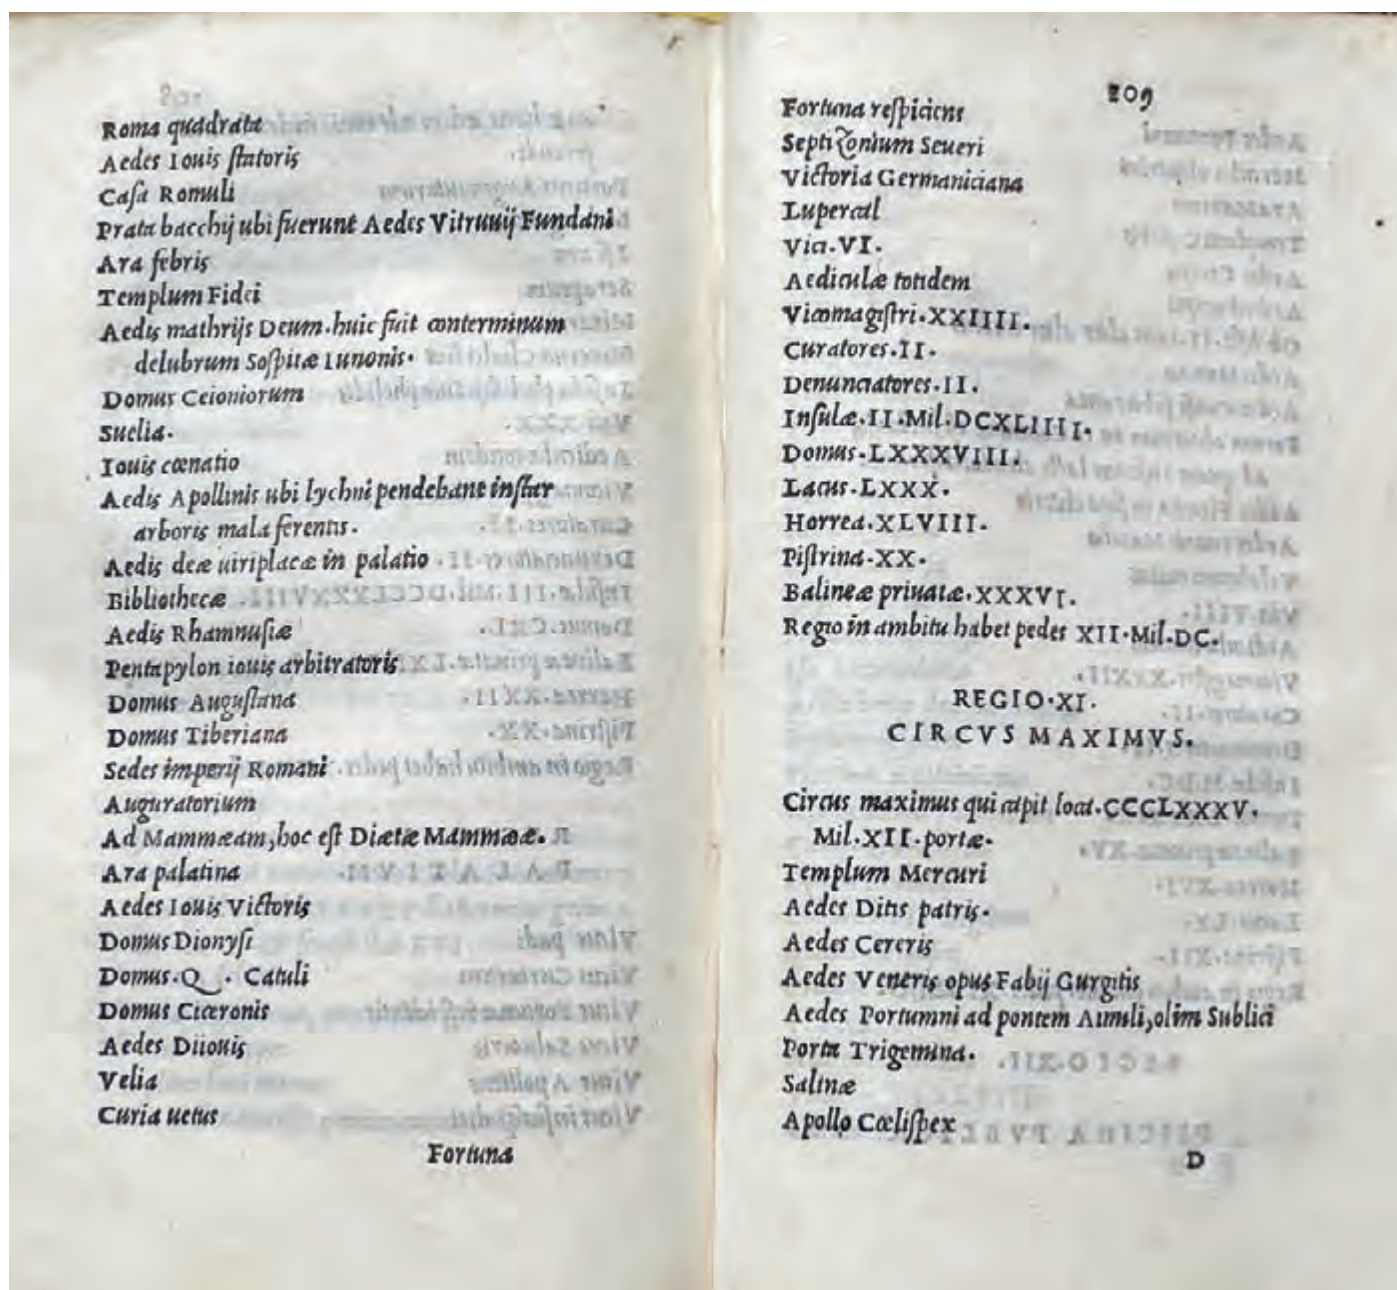 Roma quadrata
Aedes Iouis ſtatoris
Caſa Romuli
Prata bacchij ubi fuerunt Aedes Vitruuij Fundani
Ara febris
Templum Fidei
Aedis mathrijs Deum.huic fuit conterminum
delubrum Soſpitæ Iunonis.
Domus Ceioniorum
Suelia.
Iouis cœnatio
Aedis Apollinis ubi lychni pendebant inſtar
arboris mala ferentis.
Aedis deæ uiriplacæ in palatio
Bibliothecæ
Aedis Rhamnuſiæ
Pentapylon iouis arbitratoris
Domus Auguſtana
Domus Tiberiana
Sedes imperij Romani
Auguratorium
Ad Mammæam,hoc eſt Diætæ Mammææ.
Ara palatina
Aedes Iouis Victoris
Domus Dionyſi
Domus.Q. Catuli
Domus Ciceronis
Aedes Diiouis
Velia
Curia uetus
Fortuna
209
Fortuna reſpiciens
Septizonium Seueri
Victoria Germaniciana
Lupercal
Vici.VI.
Aediculæ totidem
Vicomagiſtri.XXIIII.
Curatores.II.
Denunciatores.II.
Inſulæ.II.Mil.DCXLIIII.
Domus.LXXXVIII.
Lacus.LXXX.
Horrea.XLVIII.
Piſtrina.XX.
Balineæ priuatæ.XXXVI.
Regio in ambitu habet pedes XII.Mil.DC.
REGIO.XI.
CIRCVS MAXIMVS.
Circus maximus qui capit loca.CCCLXXXV.
Mil.XII.portæ.
Templum Mercuri
Aedes Ditis patris.
Aedes Cereris
Aedes Veneris opus Fabij Gurgitis
Aedes Portumni ad pontem Aimili,olim Sublici
Porta Trigemina.
Salinæ
Apollo Cœliſpex
D